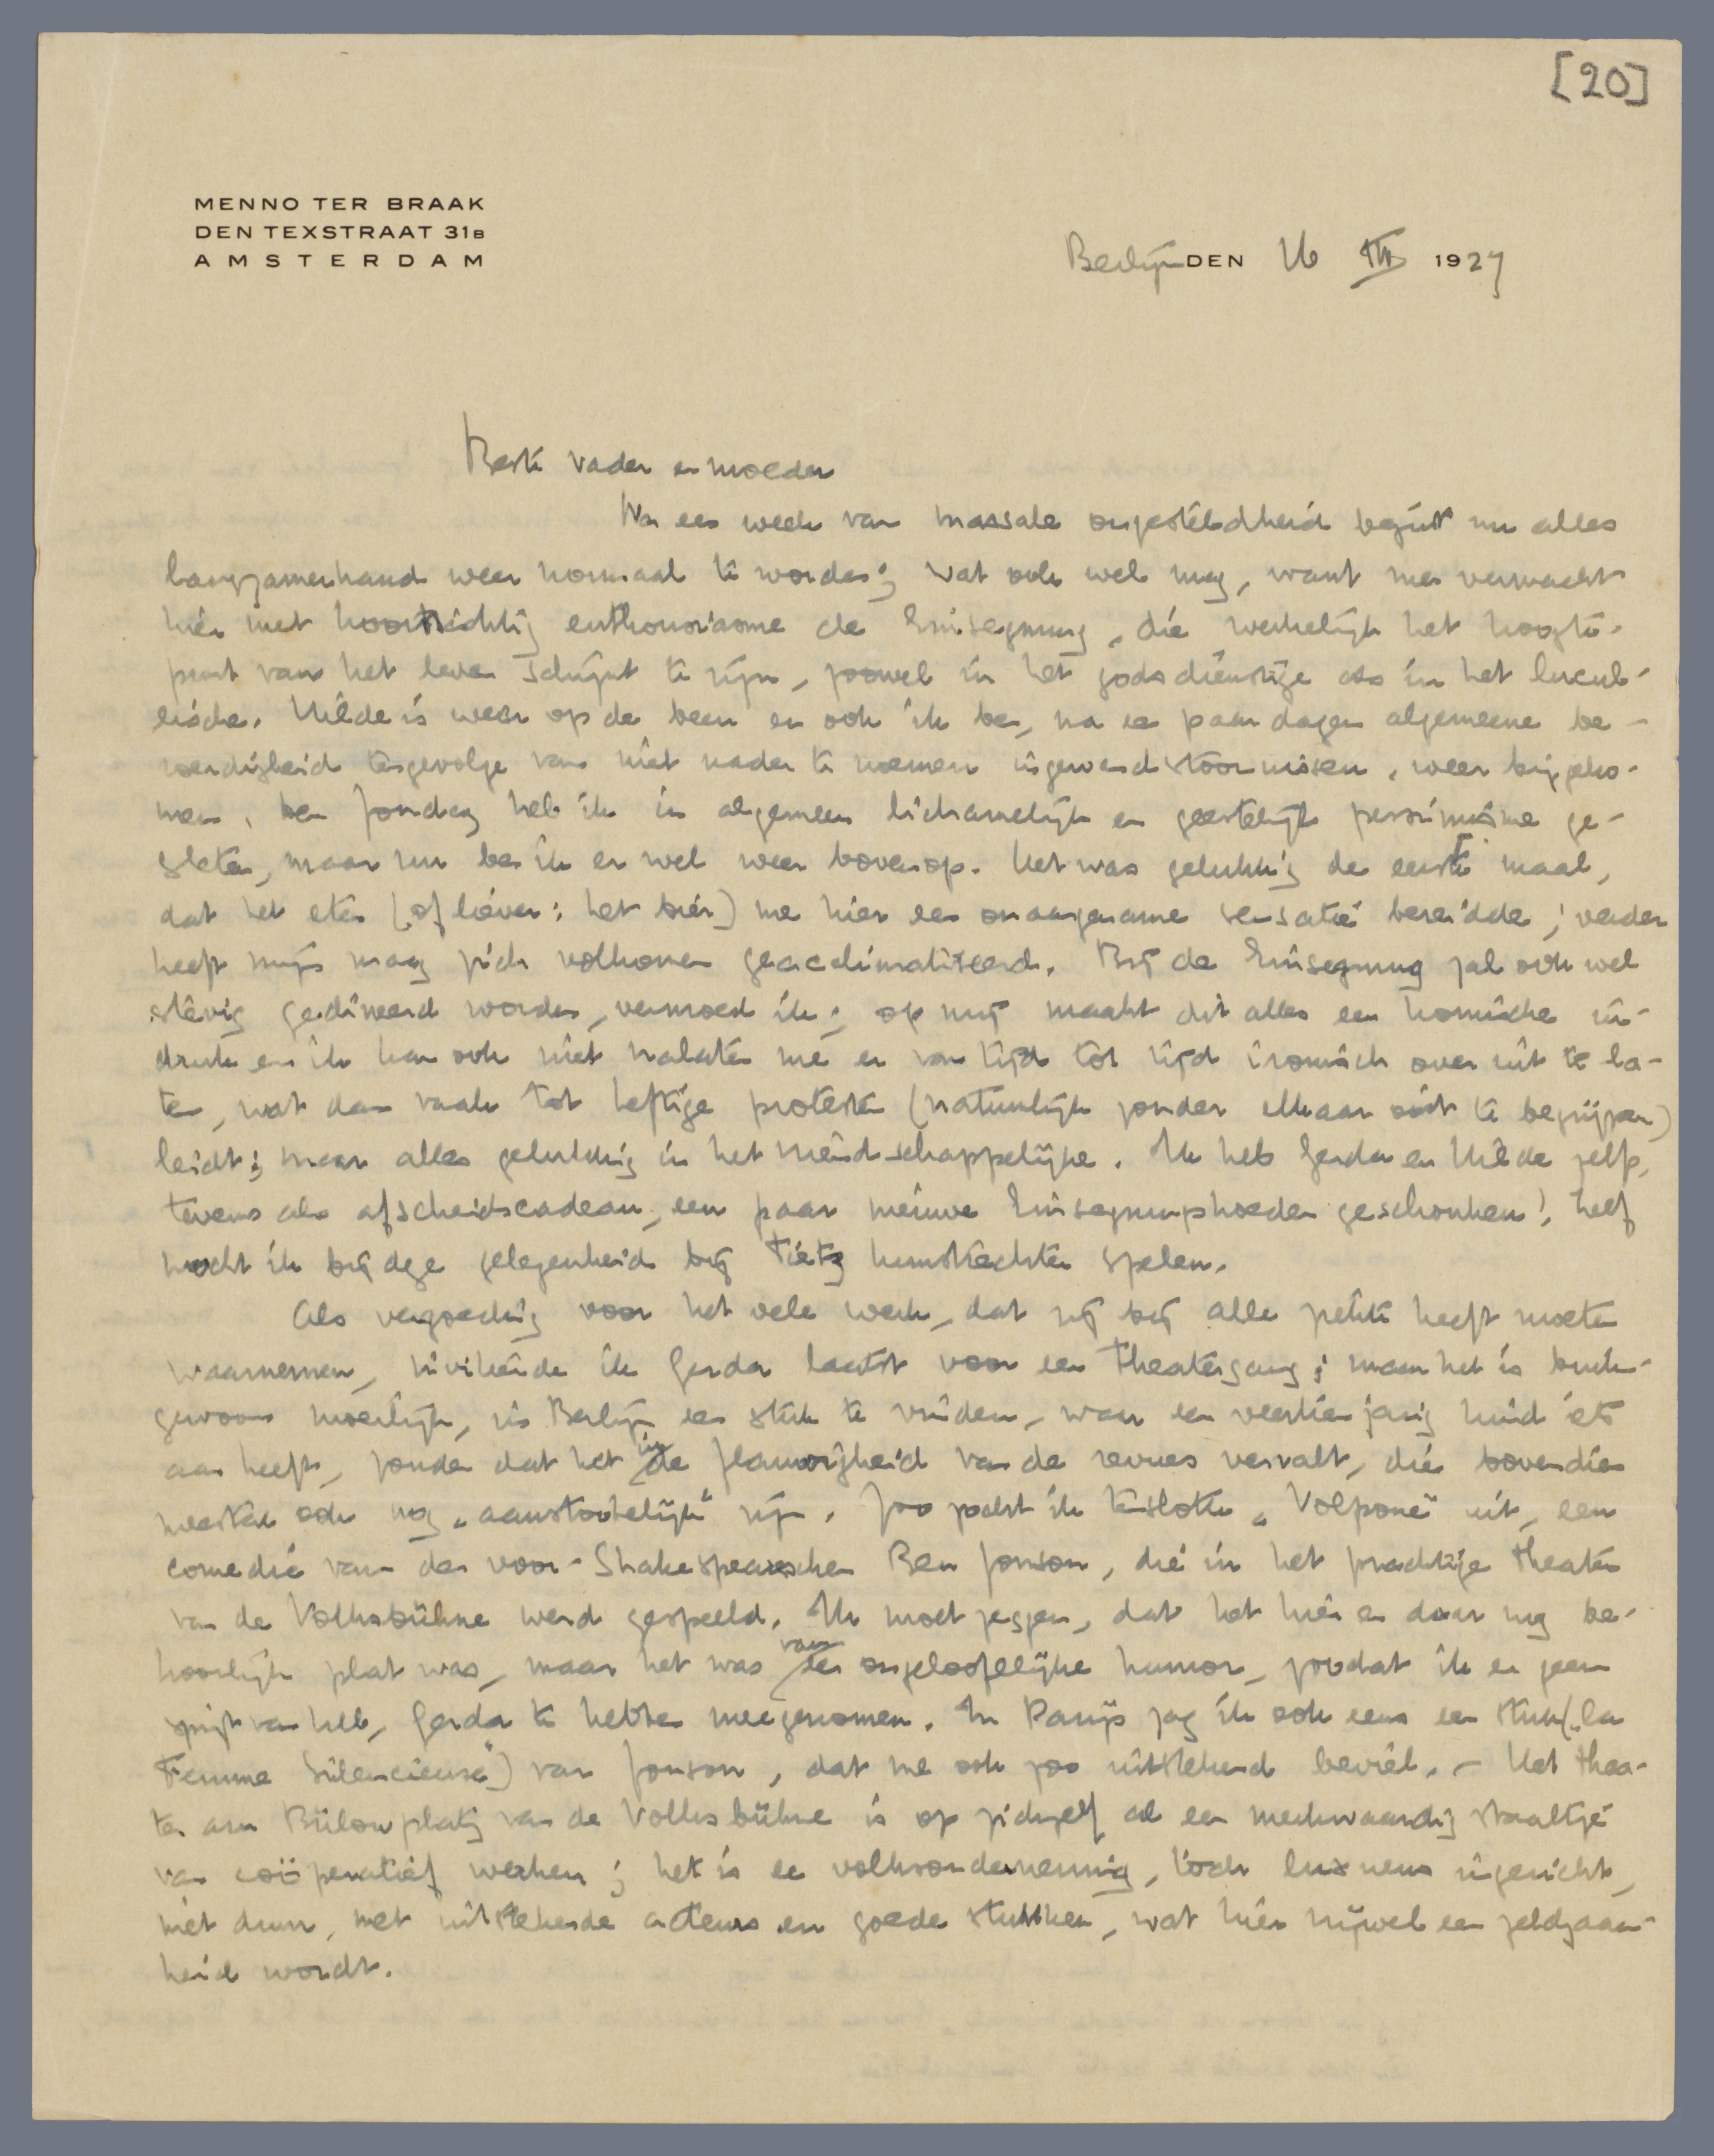 [20]
MENNO TER BRAAK
DEN TEXSTRAAT 31B
AMSTERDAM
Berlijn DEN 16 III 1927
Beste vader en moeder
Na een week van massale ongesteldheid begint nu alles
langzamerhand weer normaal te worden; wat ook wel mag, want men verwacht
hier met koortsachtig enthousiasme de Einsegnung, die werkelijk het hoogte-
punt van het leven schijnt te zijn, zoowel in het godsdienstige als in het lucul-
lische. Hilde is weer op de been en ook ik ben, na een paar dagen algemeene be-
roerdigheid tengevolge van niet nader te noemen ingewandstoornissen, weer bijgeko-
men. Den Zondag heb ik in algemeen lichamelijk en geestelijk pessimisme ge-
sleten, maar nu ben ik er wel weer bovenop. Het was gelukkig de eerste maal,
dat het eten (of liever: het bier) me hier een onaangename sensatie bereidde; verder
heeft mijn maag zich volkomen geacclimatiseerd. Bij de Einsegnung zal ook wel
stevig gedineerd worden, vermoed ik; op mij maakt dit alles een komische in-
druk en ik kan ook niet nalaten me er van tijd tot tijd ironisch over uit te la-
ten, wat dan vaak tot heftige protesten (natuurlijk zonder elkaar ooit te begrijpen)
leidt; maar alles gelukkig in het vriendschappelijke. Ik heb Gerda en Hilde zelf,
tevens als afscheidscadeau, een paar nieuwe Einsegnungshoeden geschonken! Zelf
mocht ik bij deze gelegenheid bij Tietz kunstrechter spelen.
Als vergoeding voor het vele werk, dat zij bij alle zieken heeft moeten
waarnemen, inviteerde ik Gerda laatst voor een theatergang; maar het is buiten-
gewoon moeilijk, in Berlijn een stuk te vinden, waar een veertienjarig kind iets
aan heeft, zonder dat het in de flauwigheid van de revues vervalt, die bovendien
meestal ook nog "aanstootelijk" zijn. Zoo zocht ik tenslotte "Volpone" uit, een
comedie van den voor-Shakespeareschen Ben Jonson, die in het prachtige theater
van de Volksbühne werd gespeeld. Ik moet zeggen, dat het hier en daar nog be-
hoorlijk plat was, maar het was van een ongeloofelijke humor, zoodat ik er geen
spijt van heb, Gerda te hebben meegenomen. In Parijs zag ik ook eens een stuk ("La
Femme Silencieuse") van Jonson, dat me ook zoo uitstekend beviel. – Het thea-
ter am Bülowplatz van de Volksbühne is op zichzelf al een merkwaardig staaltje
van coöperatief werken; het is een volksonderneming, toch luxueus ingericht,
niet duur, met uitstekende acteurs en goede stukken, wat hier zijwel een zeldzaam-
heid wordt.